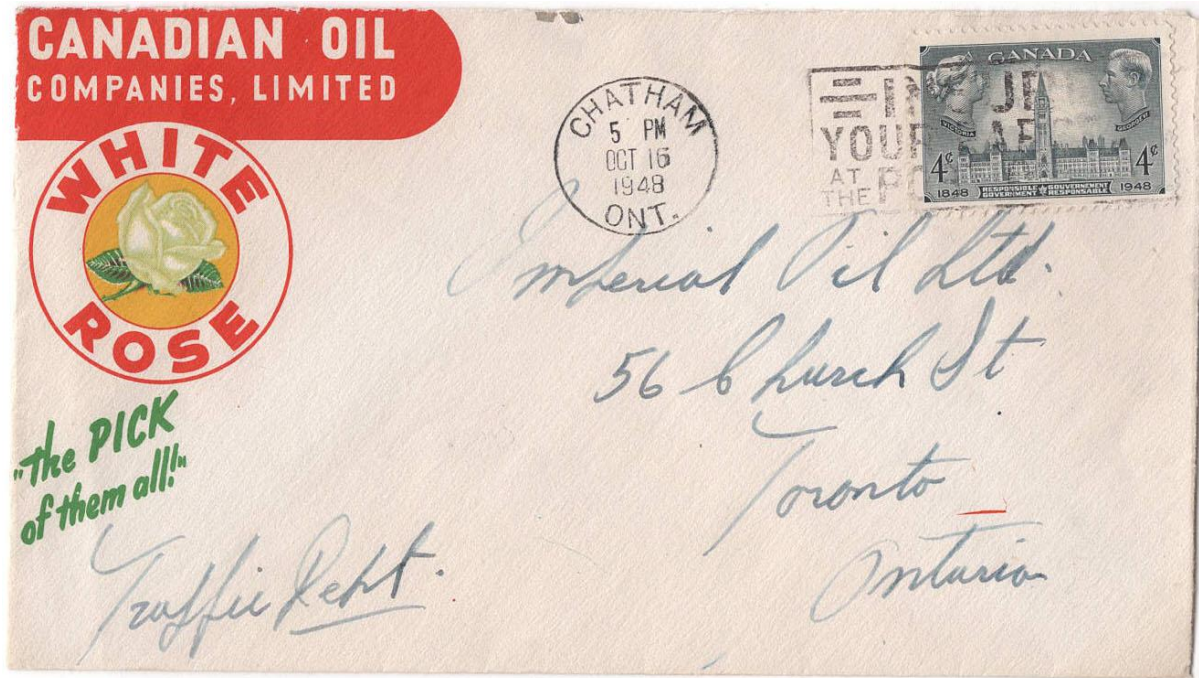 CANADIAN OIL
COMPANIES, LIMITED
WHITE
ROSE
"the PICK
of them all!"
CHATHAM
5 PM
OCT 16
1948
ONT.
YOUR
AT
THE
CANADA
VICTORIA
GEORGE VI
4¢ 4¢
1848 RESPONSIBLE GOVERNMENT GOUVERNEMENT RESPONSABLE 1948
Imperial Oil Ltd.
56 Church St
Toronto
Ontario
Traffic Dept.